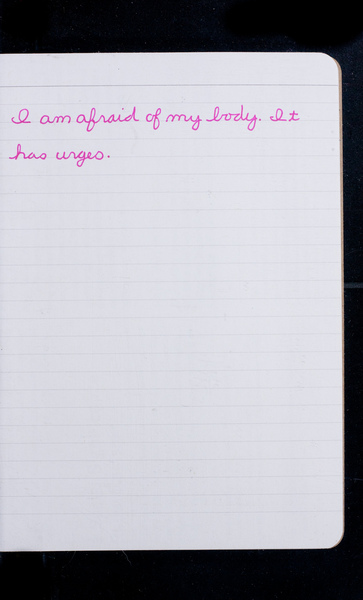 I am afraid of my body. It
has urges.